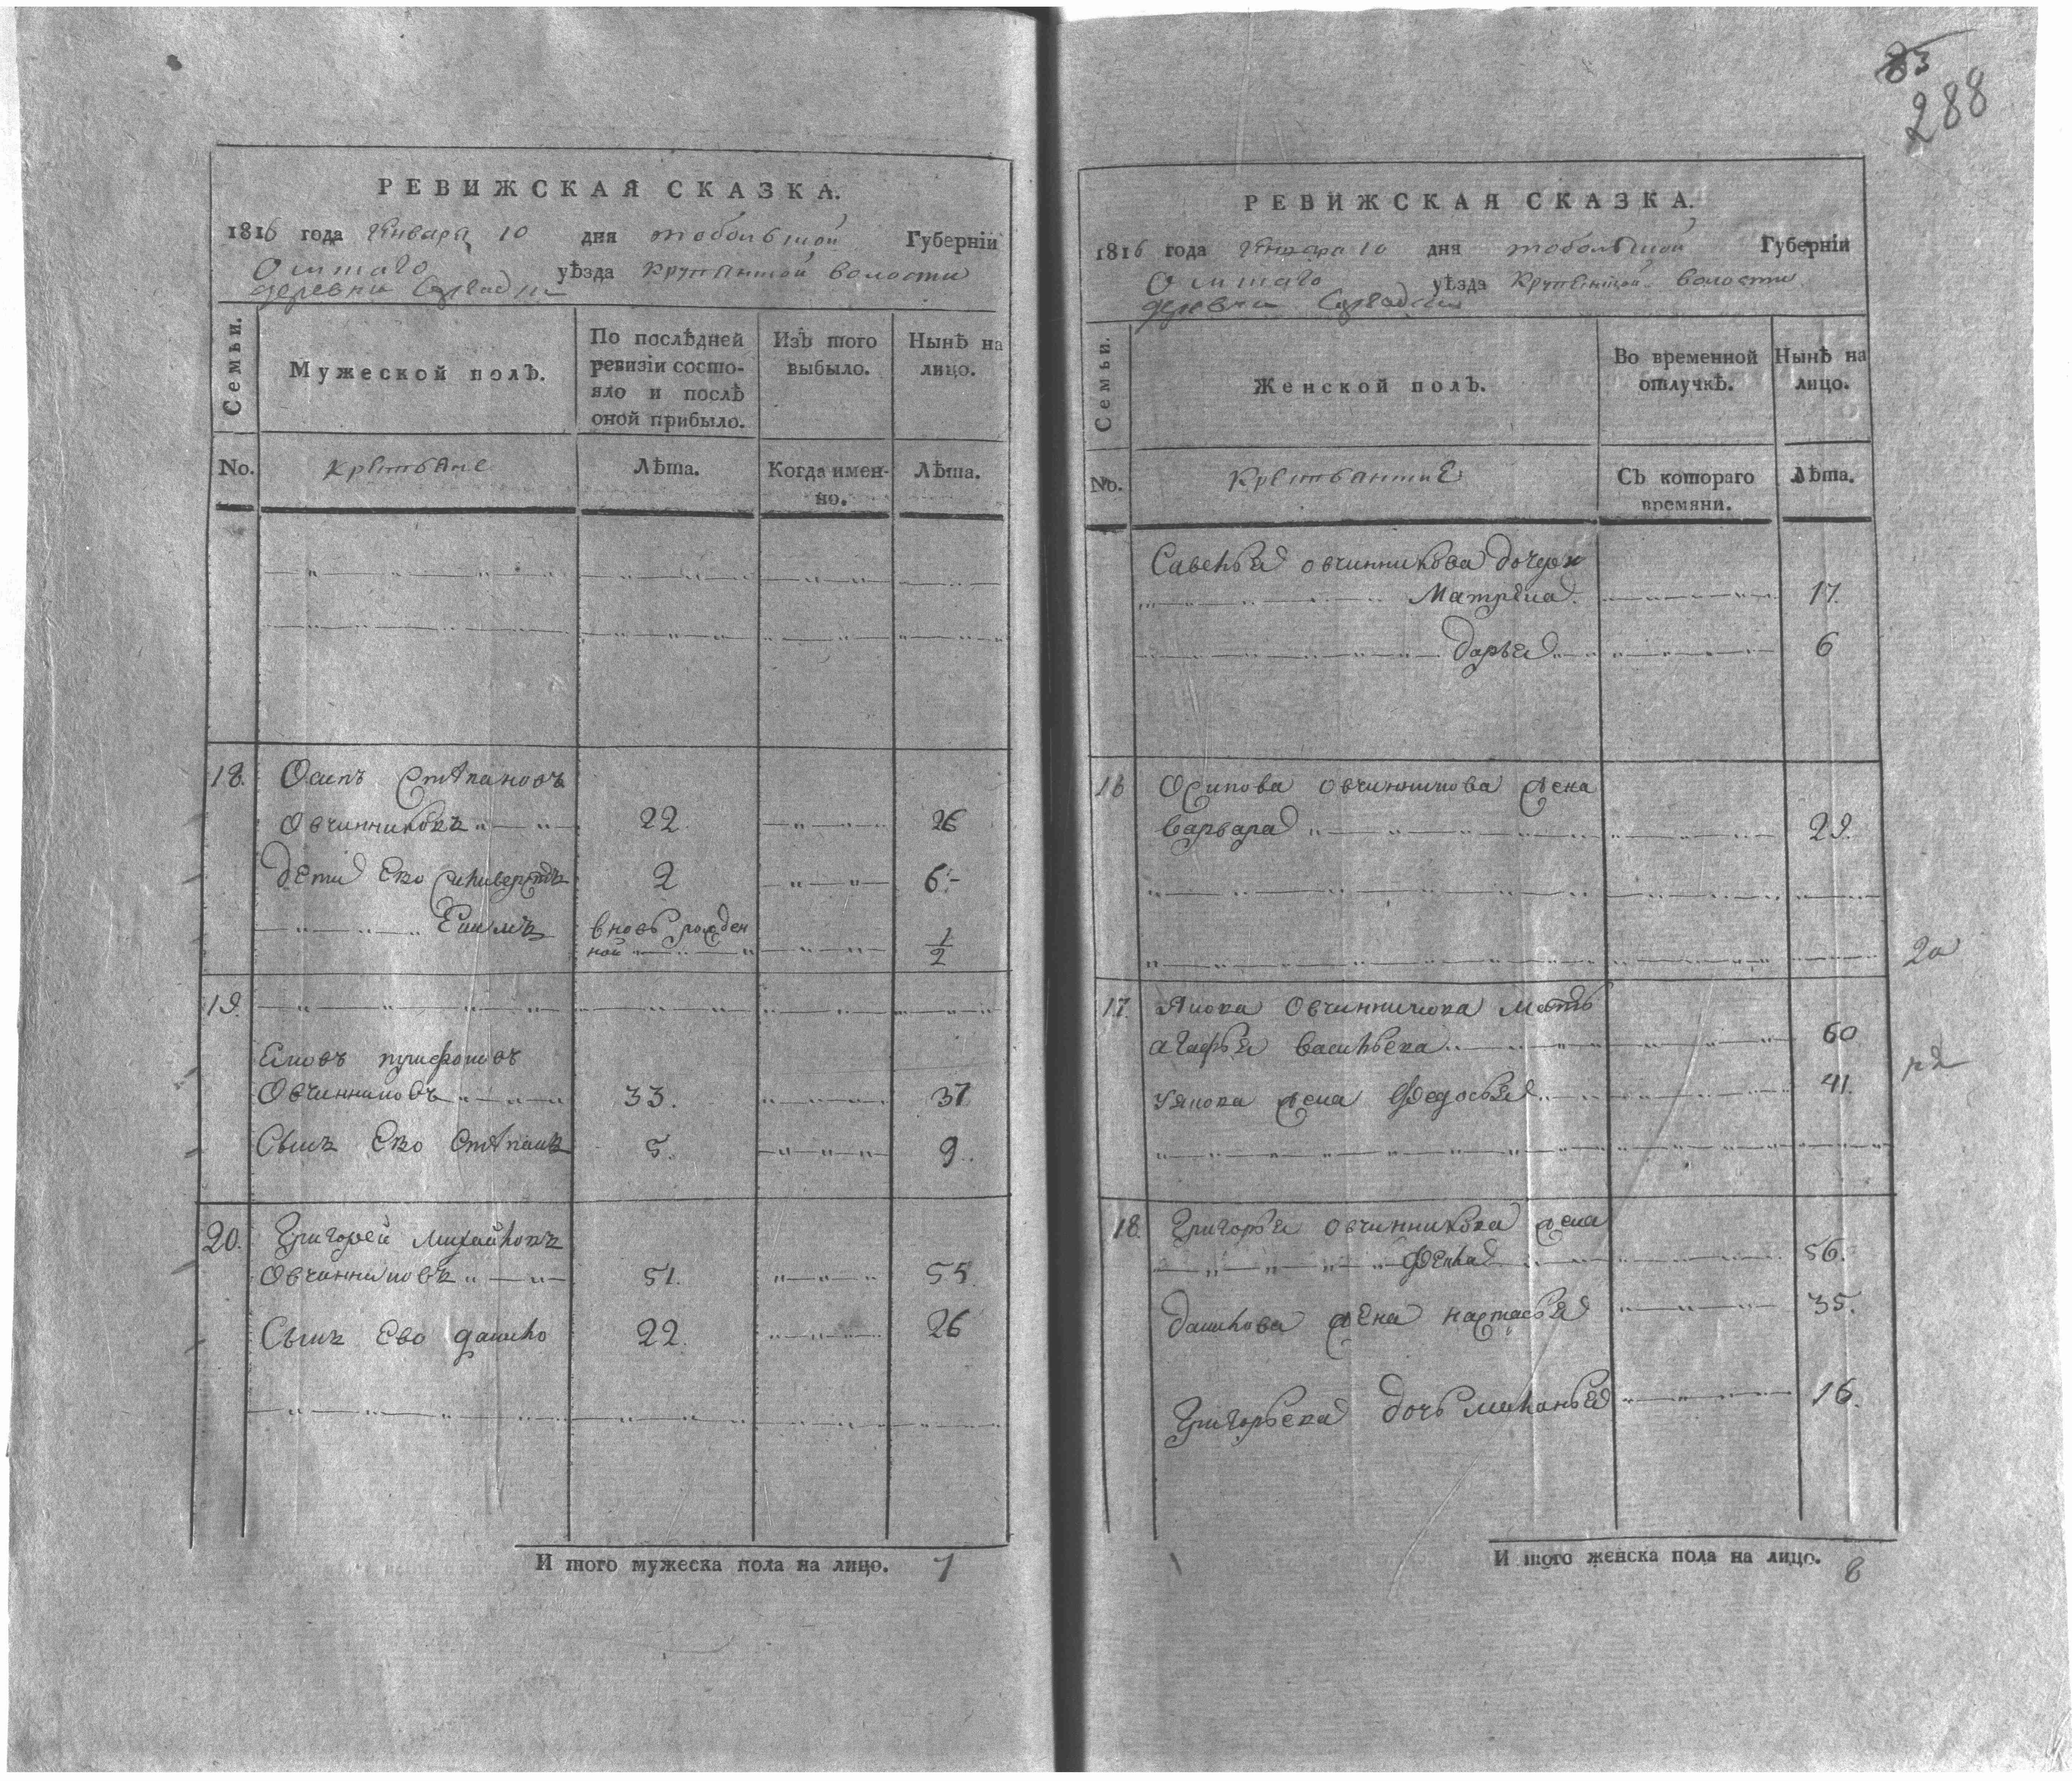 РЕВИЖСКАЯ СКАЗКА.
1816 года Генваря 10 дня тобольшой Губерніи
Омшаго уѣзда волости
деревни
Семьи.
Мужеской полъ.
По послѣдней ревизіи состо-
яло и послѣ
оной прибыло.
Изъ того
выбыло.
Нынѣ на
лицо.
No.
Лѣта.
Когда имен-
но.
Лѣта.
18. Осипъ Степановъ
Овчинниковъ 22. 26
дети Ево 2 6
вновь рожден
ной 1/2
19.
Овчинниковъ 33. 37
Сынъ Ево Степанъ 5. 9.
20. Григорей Михайловъ
Овчинниковъ 51. 55.
Сынъ Ево данило 22. 26
И того мужеска пола на лицо. 7
288
РЕВИЖСКАЯ СКАЗКА.
1816 года Генваря 10 дня тобольшой Губерніи
Омшаго уѣзда волости
деревни
Семьи.
Женской полъ.
Во временной
отлучкѣ.
Нынѣ на
лицо.
No.
Съ котораго
времяни.
Лѣта.
Савелья овчинникова дочери
Матрена 17.
дарья 6
16 Осипова овчинникова жена
варвара 29.
17. Овчинникова мать
агафья васильева 60
жена Федосья 41.
18. Григорья овчинникова жена
Фекла 56.
данилова жена настасья 35.
Григорьева дочь миланья 16.
И того женска пола на лицо. 8